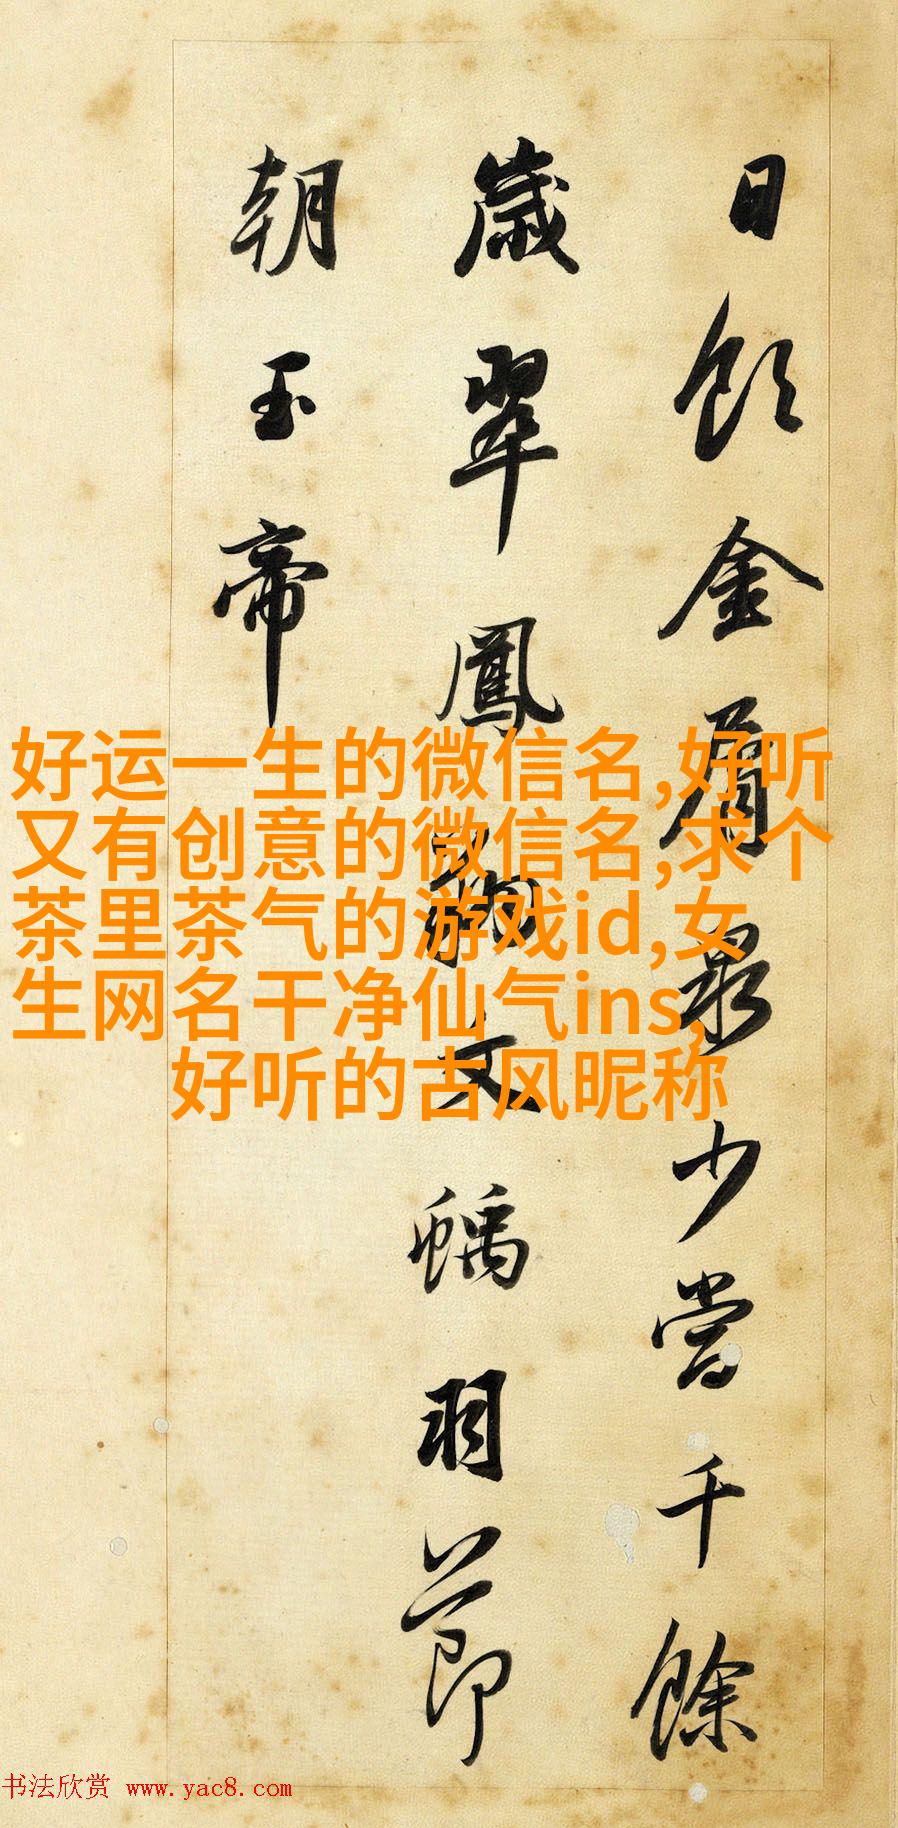 日飲金屑泉少當千餘
歲翠鳳文螭羽節
朝玉帝
好运一生的微信名,好听
又有创意的微信名,求个
茶里茶气的游戏id,女
生网名干净仙气ins,
好听的古风昵称
书法欣赏 www.yac8.com